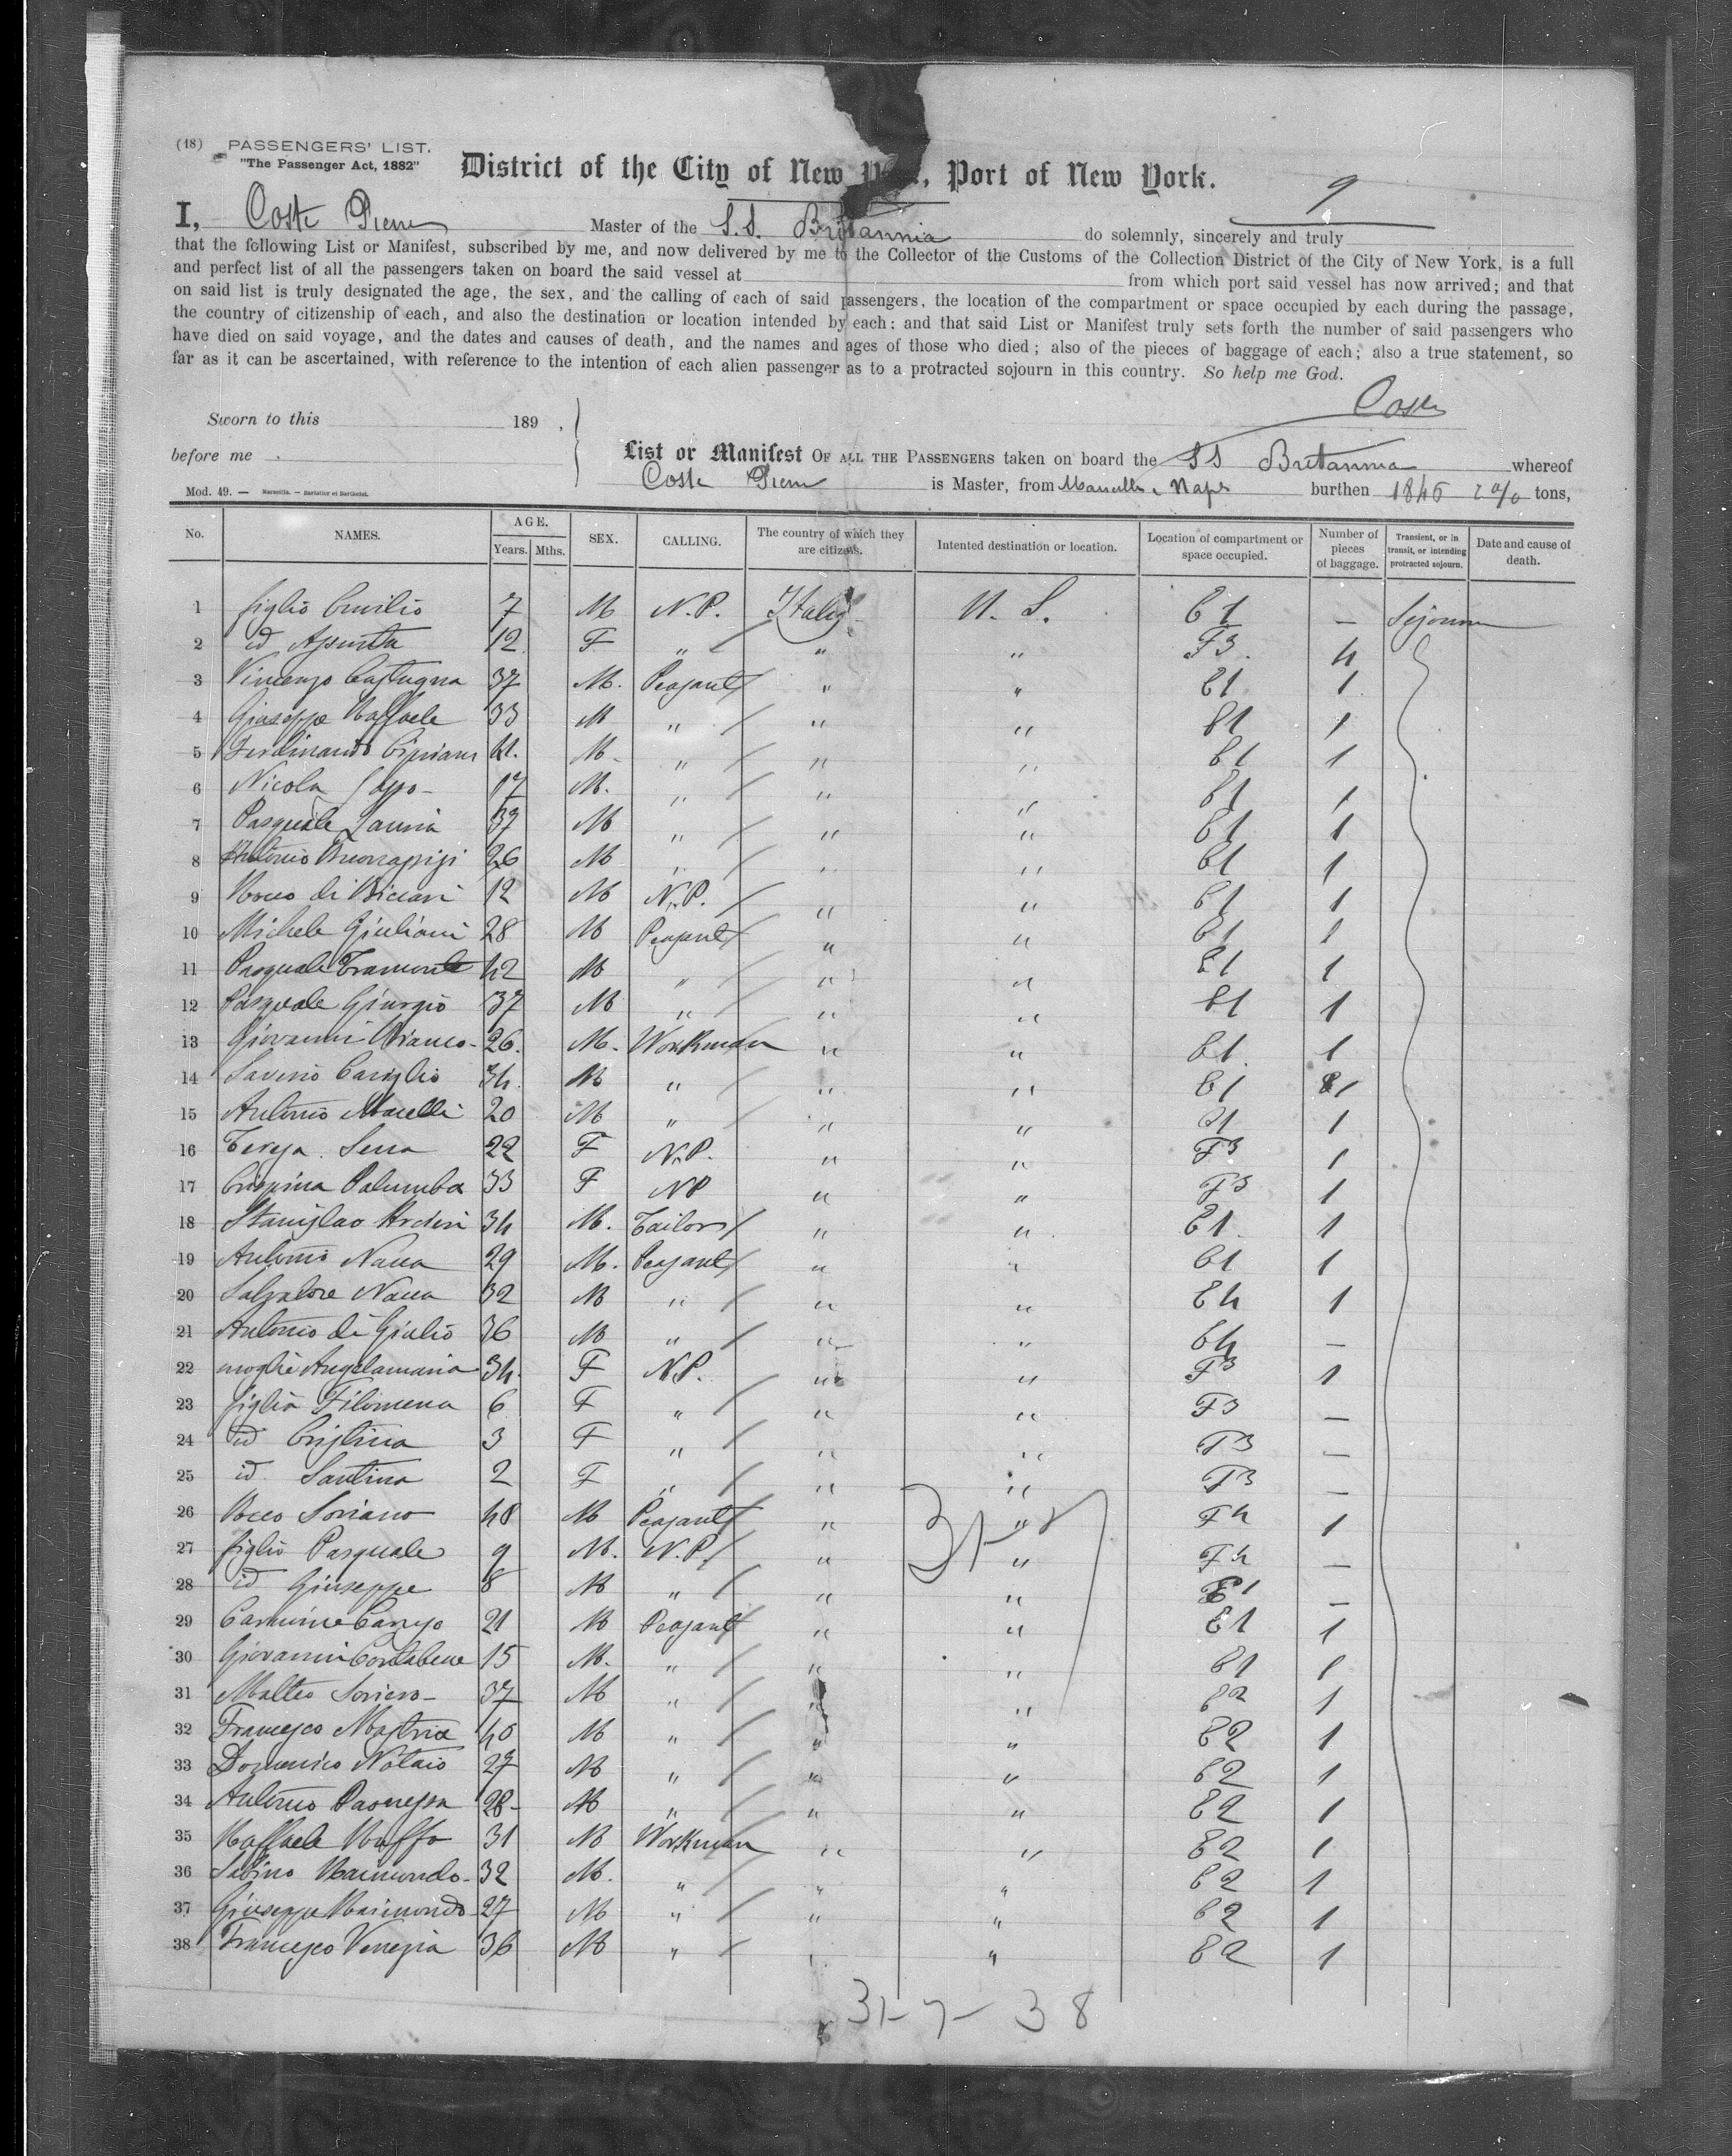 (18) PASSENGERS' LIST.
"The Passenger Act, 1882"
District of the City of New York, Port of New York.
9
I, Coste Pierre Master of the S.S. Britannia do solemnly, sincerely and truly
that the following List or Manifest, subscribed by me, and now delivered by me to the Collector of the Customs of the Collection District of the City of New York, is a full
and perfect list of all the passengers taken on board the said vessel at from which port said vessel has now arrived; and that
on said list is truly designated the age, the sex, and the calling of each of said passengers, the location of the compartment or space occupied by each during the passage,
the country of citizenship of each, and also the destination or location intended by each; and that said List or Manifest truly sets forth the number of said passengers who
have died on said voyage, and the dates and causes of death, and the names and ages of those who died; also of the pieces of baggage of each; also a true statement, so
far as it can be ascertained, with reference to the intention of each alien passenger as to a protracted sojourn in this country. So help me God.
Coste
Sworn to this 189 ,
before me
List or Manifest OF ALL THE PASSENGERS taken on board the SS Britannia whereof
Coste Pierre is Master, from Marseille & Naples burthen 1846 tons,
Mod. 49. — Marseille. — Barlatier et Barthelet.
No. NAMES. AGE. Years. Mths. SEX. CALLING. The country of which they are citizens. Intented destination or location. Location of compartment or space occupied. Number of pieces of baggage. Transient, or in transit, or intending protracted sojourn. Date and cause of death.
1 figlio Emilio 7 M N.P. Italy U. S. E1 — Sejourn
2 id Assunta 12 F " " " F3 4
3 Vincenzo Castagna 37 M. Peasant " " E1 1
4 Giuseppe Raffaele 33 M " " " E1 1
5 Ferdinando Cipriani 41. M " " " E1 1
6 Nicola 17 M. " " " E1 1
7 Pasquale Lauria 37 M " " " E1 1
8 Antonio 26 M " " " E1 1
9 Rocco di Biccari 12 M N.P. " " E1 1
10 Michele Giuliani 28 M Peasant " " E1 1
11 Pasquale Tramonte 42 M " " " E1 1
12 Pasquale Giorgio 37 M " " " E1 1
13 Giovanni 26. M. Workman " " E1 1
14 Saverio Cariglio 34. M " " " E1 1
15 Antonio Morelli 20 M " " " E1 1
16 Teresa Serra 22 F N.P. " " F3 1
17 Crispina Palumba 33 F NP " " F3 1
18 Stanislao 34 M. Tailor " " E1 1
19 Antonio Nacca 29 M. Peasant " " E1 1
20 Salvatore Nacca 32 M " " " E4 1
21 Antonio di Giulio 36 M " " " E4 —
22 moglie Angelamaria 34. F N.P. " " F3 1
23 figlia Filomena 6 F " " " F3 —
24 id Cristina 3 F " " " F3 —
25 id Santina 2 F " " " F3 —
26 Rocco Soriano 48 M Peasant " " F4 1
27 figlio Pasquale 9 M. N.P. " " F4 —
28 id Giuseppe 8 M " " " E1 —
29 Carmine 21 M Peasant " " E1 1
30 Giovanni Contabene 15 M. " " " E1 1
31 Matteo Soriero 37 M " " " E2 1
32 Francesco Mastria 40 M " " " E2 1
33 Domenico Notaio 27 M " " " E2 1
34 Antonio Paonessa 28 M " " " E2 1
35 Raffaele Ruffo 31 M Workman " " E2 1
36 Sabino Raimondo 32 M. " " " E2 1
37 Giuseppe Raimondo 27 M " " " E2 1
38 Francesco Venezia 36 M " " " E2 1
31-7
31-7-38